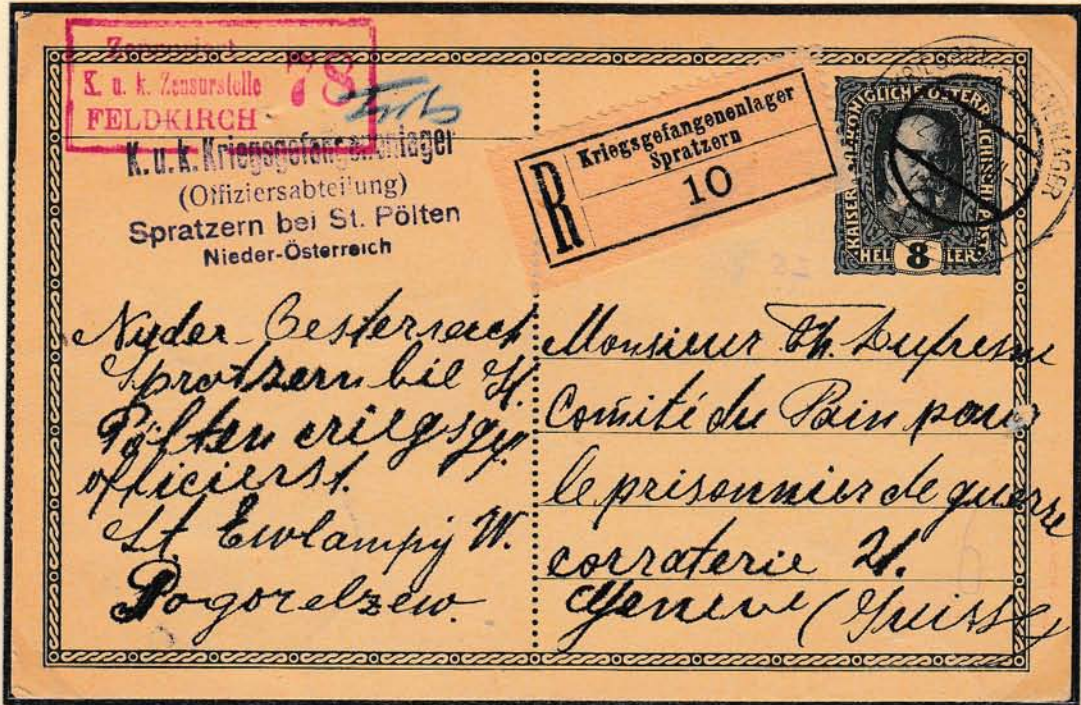 Zensuriert
K. u. k. Zensurstelle
FELDKIRCH
78
K.u.k. Kriegsgefangenenlager
(Offiziersabteilung)
Spratzern bei St. Pölten
Nieder-Österreich
R
Kriegsgefangenenlager
Spratzern
10
KAISERLICHKÖNIGLICHE ÖSTERREICHISCHE POST
HELLER
8
KRIEGSGEFANGENENLAGER
Nyder-Oesterreach
Sprotzern bil St.
Pölten criegsgf.
officierst.
Lt. Ewlampij W.
Pogorelzew.
Monsieur Th. Dufresne
Comité du Pain pour
le prisonnier de guerre
corraterie 21.
Geneve (Suisse)